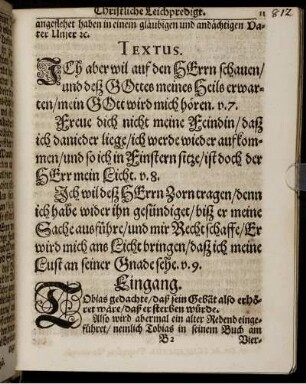 Christliche Leichpredigt. 11 812
angeflehet haben in einem glaubigen und andächtigen Va-
ter Unser ꝛc.
TEXTUS.
ICh aber wil auf den HErrn schauen/
und deß GOttes meines Heils erwar-
ten/mein GOtt wird mich hören. v.7.
Freue dich nicht meine Feindin/daß
ich danieder liege/ich werde wieder aufkom-
men/und so ich in Finstern sitze/ist doch der
HErr mein Licht. v.8.
Ich wil deß HErrn Zorn tragen/denn
ich habe wider ihn gesündiget/biß er meine
Sache ausführe/und mir Recht schaffe/Er
wird mich ans Licht bringen/daß ich meine
Lust an seiner Gnade sehe. v.9.
Eingang.
TObias gedachte/daß sein Gebät also erhö-
ret wäre/daß er sterben würde.
Also wird abermal ein alter Redend einge-
führet/nemlich Tobias in seinem Buch am
B 2 Vier-